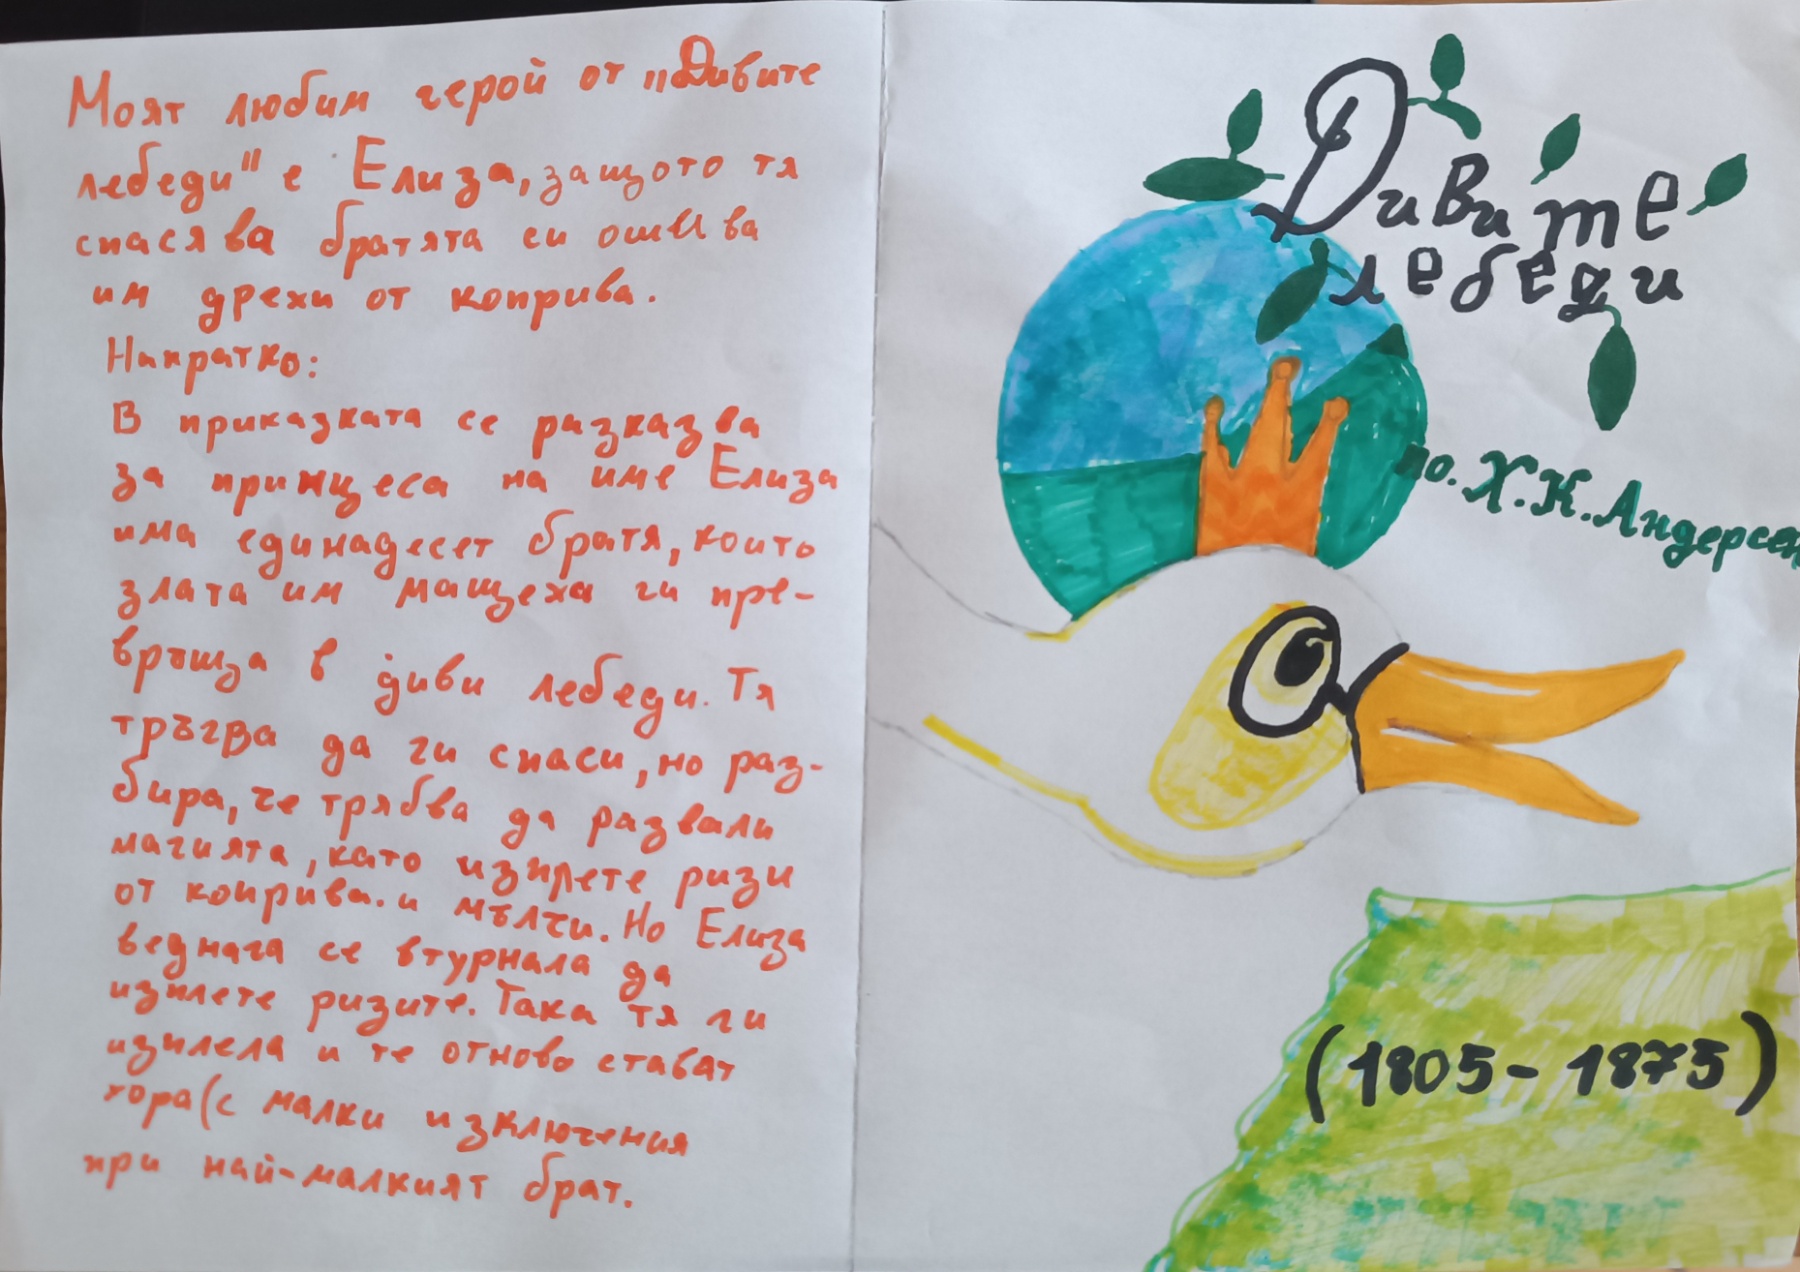 Моят любим герой от "Дивите
лебеди" е Елиза, защото тя
спасява братята си ошива
им дрехи от коприва.
Накратко:
В приказката се разказва
за принцеса на име Елиза
има единадесет братя, които
злата им мащеха ги пре-
връща в диви лебеди. Тя
тръгва да ги спаси, но раз-
бира, че трябва да развали
магията, като изплете ризи
от коприва. и мълчи. Но Елиза
веднага се втурнала да
изплете ризите. Така тя ги
изплела и те отново стават
хора (с малки изключения
при най-малкият брат.
Дивите
лебеди
по. Х.К. Андерсен
(1805-1875)